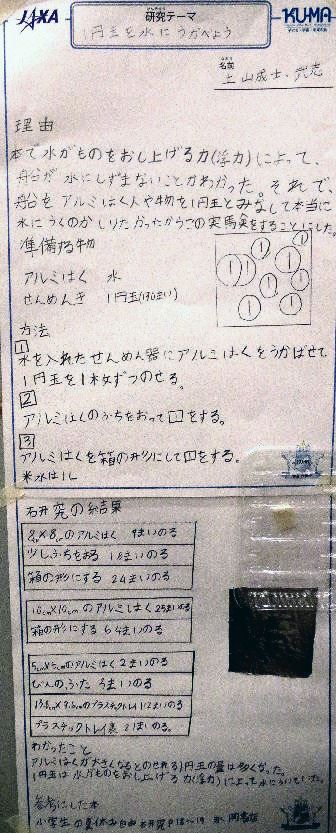 JAXA
研究テーマ
KU-MA
1円玉を水にうかべよう
名前
理由
本で水がものをおし上げる力(浮力)によって、
船が水にしずまないことがわかった。それで
船をアルミはく人や物を1円玉とみなして本当に
水にうくのかしりたかったからこの実馬食をすることにした。
準備する物
アルミはく 水
せんめんき 1円玉
方法
1
水を入れたせんめん器にアルミはくをうかばせて
1円玉を1枚ずつのせる。
2
アルミはくのふちをおって1をする。
3
アルミはくを箱の形にして1をする。
※水は1L
研究の結果
8cm×8cmのアルミはく 9まいのる
少しふちをおる 18まいのる
箱の形にする 24まいのる
10cm×10cmのアルミはく 25まいのる
箱の形にする 64まいのる
5cm×5cmのアルミはく 2まいのる
びんのふた 5まいのる
プラスチックトレイ 12まいのる
プラスチックトレイ表 21まいのる。
わかったこと
アルミはくが大きくなるとのせれる1円玉の量は多くなった。
1円玉は水がものをおし上げる力(浮力)によって水にういていた。
参考にした本
小学生の夏休み自由研究